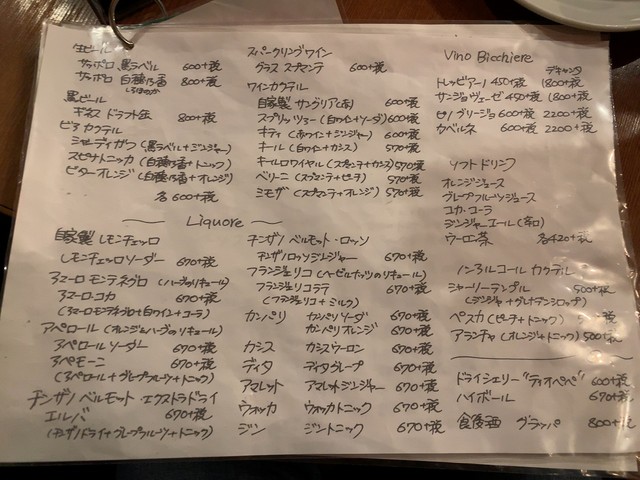 生ビール
サッポロ 黒ラベル 600+税
サッポロ 白穂乃香 800+税
しろほのか
黒ビール
ギネス ドラフト缶 800+税
ビア カクテル
シャンディガフ (黒ラベル+ジンジャー)
スピナトニッカ (白穂乃香+トニック)
ビターオレンジ (白穂乃香+オレンジ)
各600+税
スパークリングワイン
グラス スプマンテ 600+税
ワインカクテル
自家製 サングリア(赤) 600+税
スプリッツァー (白ワイン+ソーダ) 600+税
キティ (赤ワイン+ジンジャー) 600+税
キール (白ワイン+カシス) 570+税
キールロワイヤル (スプマンテ+カシス) 570+税
ベリーニ (スプマンテ+ピーチ) 570+税
ミモザ (スプマンテ+オレンジ) 570+税
Vino Bicchiere
デキャンタ
トレッビアーノ 450+税 1800+税
サンジョヴェーゼ 450+税 1800+税
ピノグリージョ 600+税 2200+税
カベルネ 600+税 2200+税
ソフトドリンク
オレンジジュース
グレープフルーツジュース
コカ・コーラ
ジンジャーエール (辛口)
ウーロン茶 各420+税
ノンアルコール カクテル
シャーリーテンプル 500+税
(ジンジャ+グレナデンシロップ)
ペスカ (ピーチ+トニック)
アランチャ (オレンジ+トニック) 500+税
ドライシェリー "ティオペペ" 600+税
ハイボール 670+税
食後酒 グラッパ 800+税
Liquore
自家製 レモンチェッロ
レモンチェッロソーダー 670+税
アマーロ モンテネグロ (ハーブのリキュール)
アマーロ・コカ 670+税
(アマーロモンテネグロ+白ワイン+コーラ)
アペロール (オレンジ&ハーブのリキュール)
アペロールソーダー 670+税
アペモーニ 670+税
(アペロール+グレープフルーツ+トニック)
チンザノ ベルモット エクストラドライ
エルバ 670+税
(チンザノドライ+グレープフルーツ+トニック)
チンザノ ベルモット・ロッソ
チンザノロッソジンジャー 670+税
フランジェリコ (ヘーゼルナッツのリキュール)
フランジェリコラテ 670+税
(フランジェリコ+ミルク)
カンパリ カンパリソーダ 670+税
カンパリオレンジ 670+税
カシス カシスウーロン 670+税
ディタ ディタグレープ 670+税
アマレット アマレットジンジャー 670+税
ウォッカ ウォッカトニック 670+税
ジン ジントニック 670+税